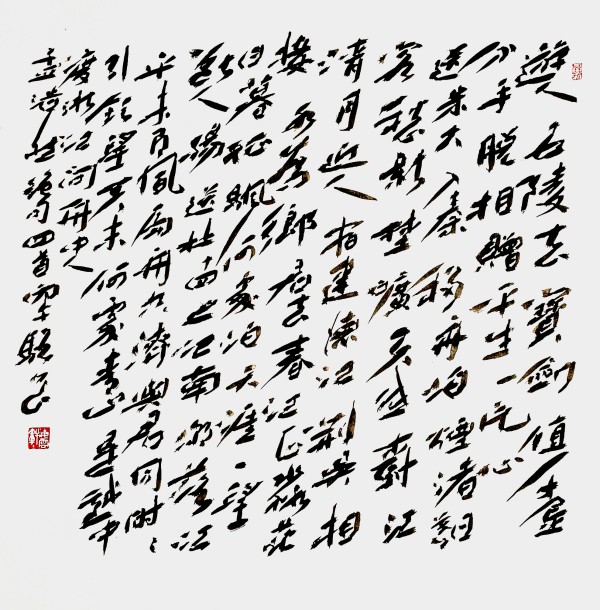 遊人五陵去寶劍值千金
分手脱相贈平生一片心
送朱大入秦移舟泊煙渚日暮
客愁新野曠天低樹江
清月近人宿建德江荆吳相
接水為鄉君去春江正淼茫
日暮孤帆何處泊天涯一望
斷人腸送杜十四之江南潮落江
平未有風扁舟共濟與君同時時
引領望天末何處青山是越中
渡浙江問舟中人
孟浩然詩四首